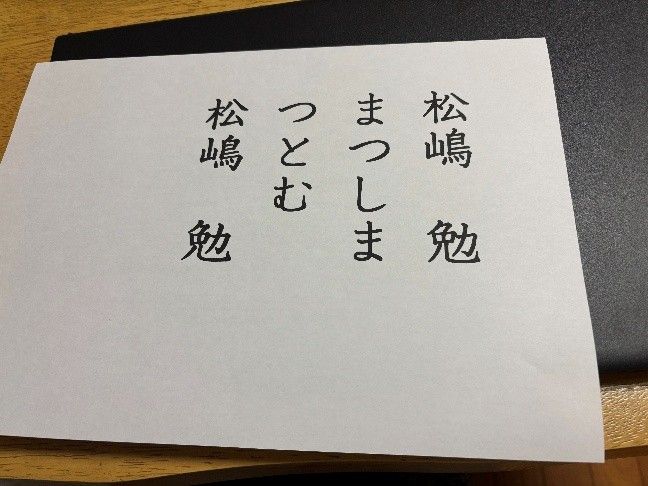 松嶋　勉
まつしま
つとむ
松嶋　勉